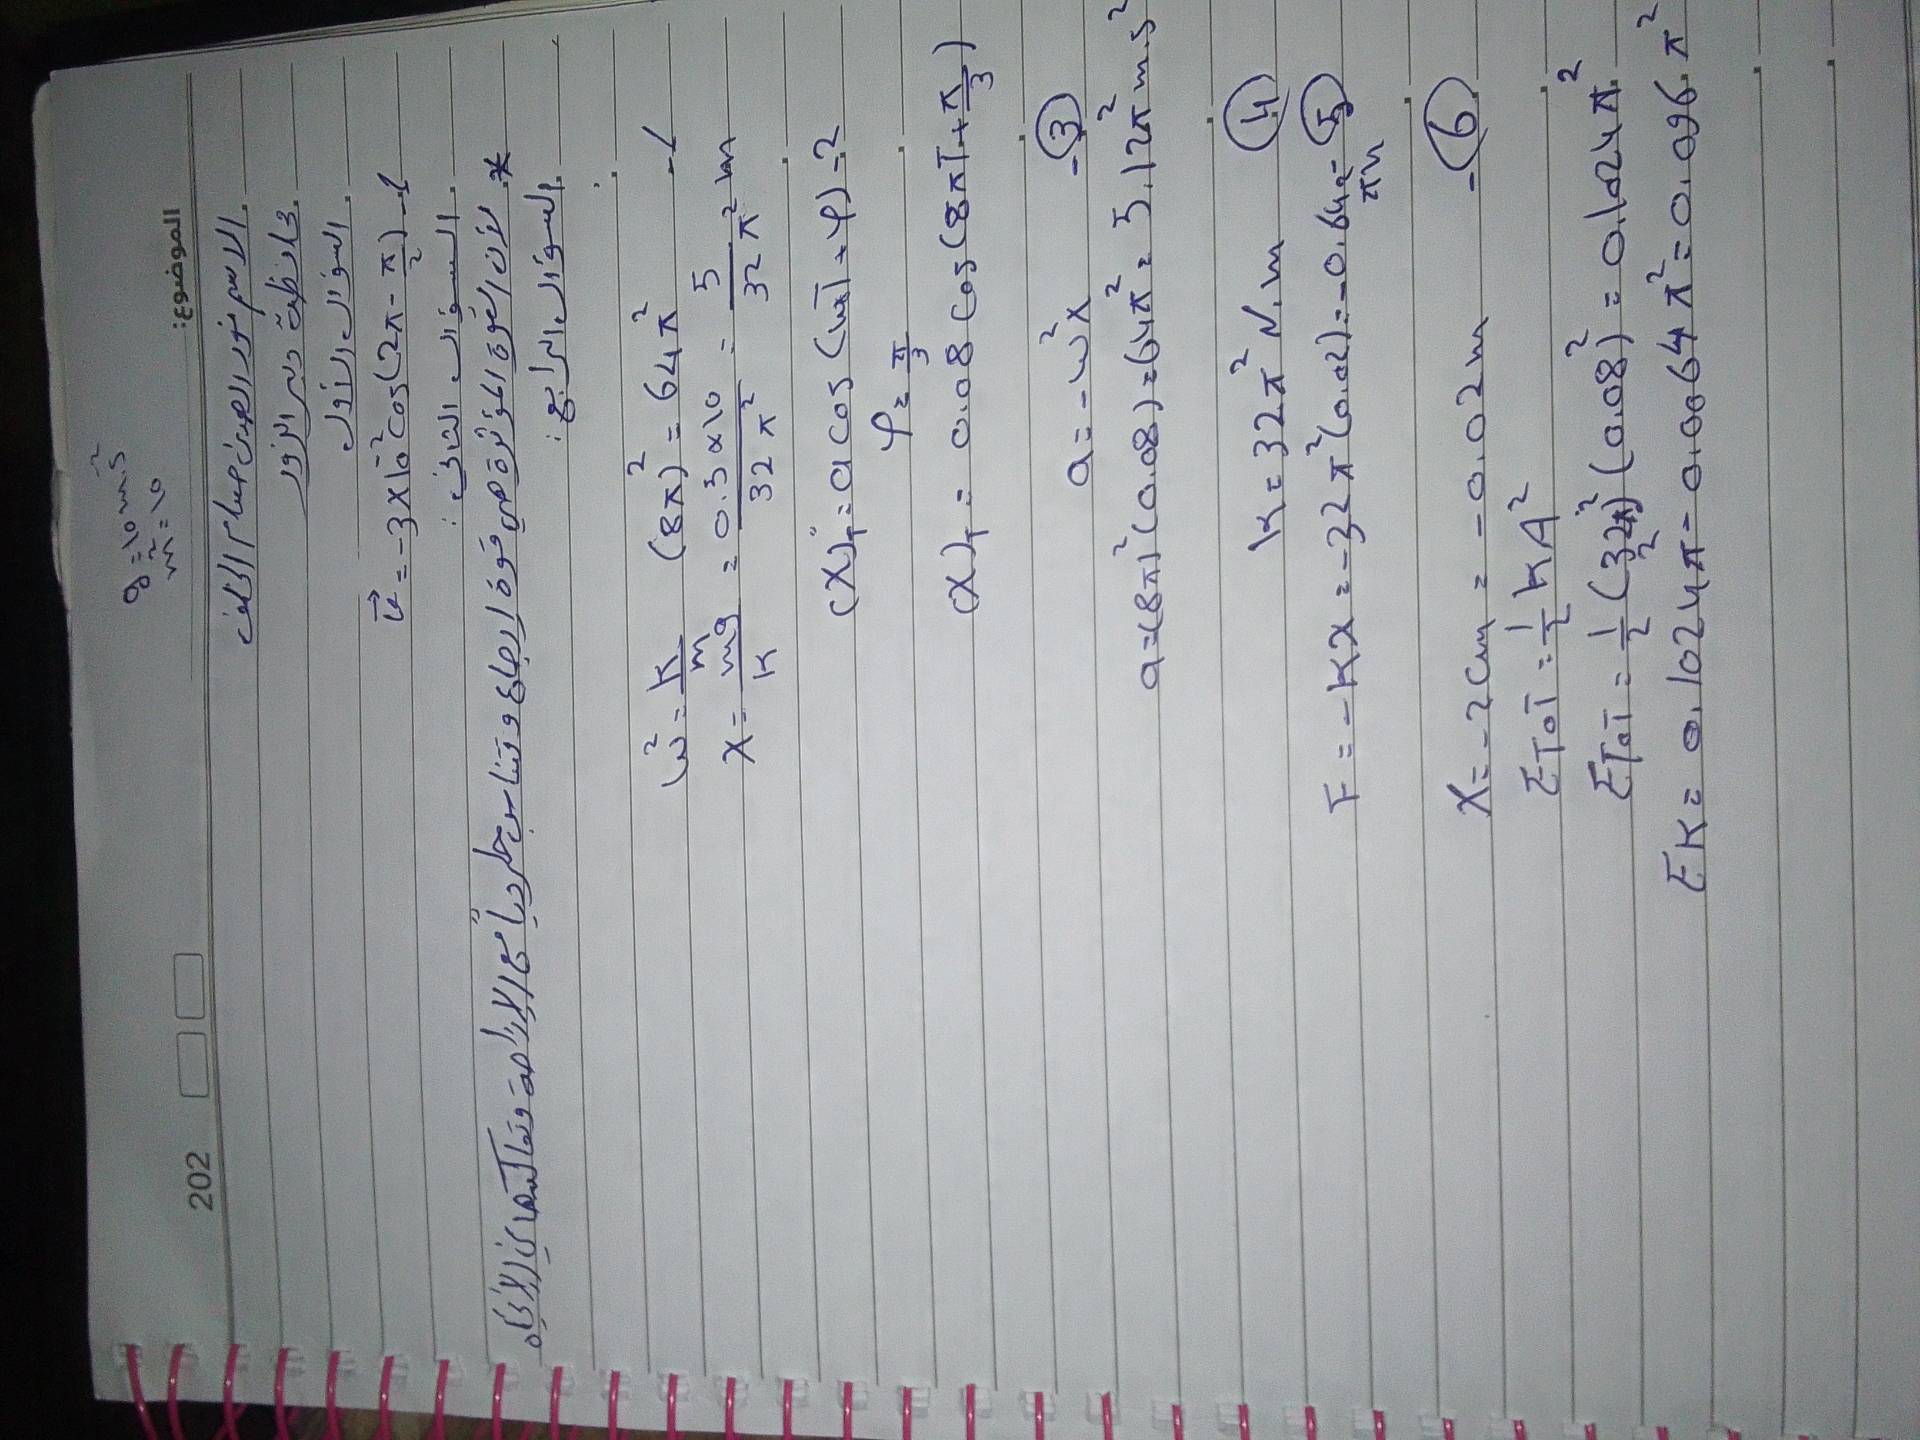 g = 10 m.s⁻²
π² = 10
الموضوع:
202
الاسم نور العين حسام الخلف
محافظة دير الزور
السؤال الأول
v⃗ = -3×10⁻² cos(2π - π/2) -1
السؤال الثاني:
* لأن القوة المؤثرة هي قوة إرجاع وتتناسب طرداً مع الإزاحة وتعاكسها في الإتجاه
السؤال الرابع:
ω² = k/m (8π)² = 64π² -1
x = mg/k = 0.5×10 / 32π² = 5/32π² m
(x)ₜ = a cos(ωt + φ) -2
φ = π/3
(x)ₜ = 0.08 cos(8πt + π/3)
a = -ω²x -③
a = (8π)² (0.08) = 64π² = 5.12π² m.s²
k = 32π² N.m ④
F = -kx = -32π² (0.02) = -0.64 -⑤
π²N
x = -2cm = -0.02m -⑥
ETOT = 1/2 kA²
ETOT = 1/2 (32π²) (0.08)² = 0.1024π²
EK = 0.1024π - 0.0064π² = 0.096π²